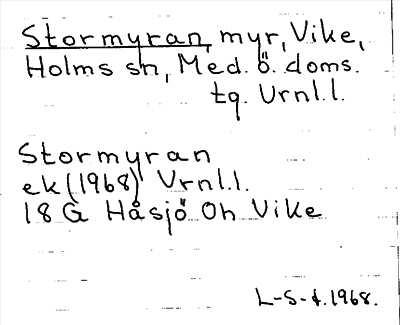 Stormyran, myr, Vike,
Holms sn, Med. ö. doms.
tg. Vrnl.l.
Stormyran
ek (1968) Vrnl.l.
18 G Håsjö Oh Vike
L-S-t. 1968.